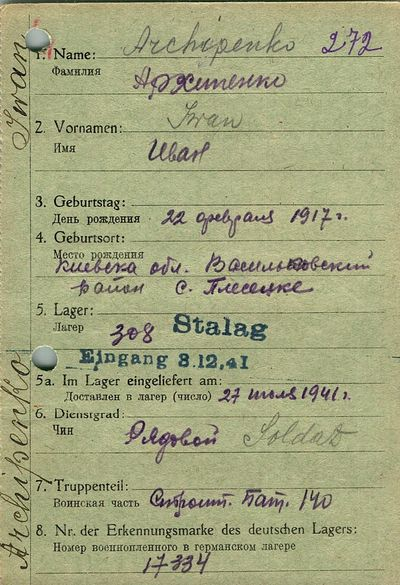 Iwan
Archipenko
1. Name: Archipenko 272
Фамилия Архипенко
2. Vornamen: Iwan
Имя Иван
3. Geburtstag:
День рождения 22 февраля 1917 г.
4. Geburtsort:
Место рождения
Киевска обл. Васильковский
район с. Плесецке
5. Lager:
Лагерь 308 Stalag
Eingang 8.12.41
5a. Im Lager eingeliefert am:
Доставлен в лагерь (число) 27 июля 1941 г.
6. Dienstgrad:
Чин Рядовой Soldat
7. Truppenteil:
Воинская часть Строит. Бат. 140
8. Nr. der Erkennungsmarke des deutschen Lagers:
Номер военнопленного в германском лагере
17334